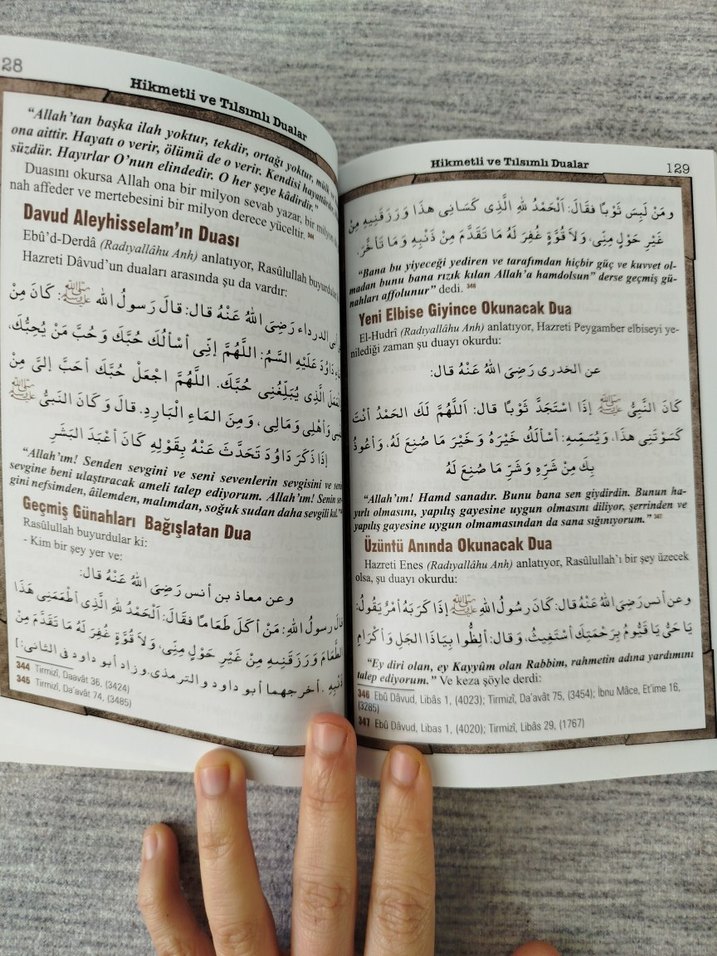 28
Hikmetli ve Tılsımlı Dualar
“Allah’tan başka ilah yoktur, tekdir, ortağı yoktur, mülk
ona aittir. Hayatı o verir, ölümü de o verir. Kendisi hayattardır,
süzdür. Hayırlar O’nun elindedir. O her şeye kâdirdir.”
Duasını okursa Allah ona bir milyon sevab yazar, bir milyon
nah affeder ve mertebesini bir milyon derece yüceltir.
Davud Aleyhisselam’ın Duası
Ebû’d-Derdâ (Radıyallâhu Anh) anlatıyor, Rasûlullah buyurdular
Hazreti Dâvud’un duaları arasında şu da vardır:
أبى الدرداء رَضِيَ اللهُ عَنْهُ قال: قالَ رَسولُ الله ﷺ: كَانَ مِنْ
دَاوُدَ عَلَيْهِ السَّمُ: اللَّهُمَّ إنِّى أَسْأَلُكَ حُبَّكَ وَحُبَّ مَنْ يُحِبُّكَ،
الَّذِى يُبَلِّغُنِى حُبَّكَ. اللَّهُمَّ اجْعَلْ حُبَّكَ أحَبَّ إلىَّ مِنْ
وَأهْلِى وَمَالِى، وَمِنَ المَاءِ الْبَارِدِ. قالَ وَكَانَ النَّبىُّ ﷺ
إذَا ذَكَرَ دَاوُدَ تَحَدَّثَ عَنْهُ بِقَوْلِهِ كَانَ أعْبَدَ الْبَشَرِ
“Allah’ım! Senden sevgini ve seni sevenlerin sevgisini ve seni
sevgine beni ulaştıracak ameli talep ediyorum. Allah’ım! Senin sev-
gini nefsimden, âilemden, malımdan, soğuk sudan daha sevgili kıl.”
Geçmiş Günahları Bağışlatan Dua
Rasûlullah buyurdular ki:
- Kim bir şey yer ve:
وعن معاذ بن أنس رَضِيَ اللهُ عَنْهُ قال:
قالَ رسولُ اللهِ: مَنْ أكَلَ طَعَاماً فقَالَ: اَلْحَمْدُ للهِ الَّذِى أطْعَمَنِى هَذَا
الطَّعَامَ وَرَزَقَنِيهِ مِنْ غَيْرِ حَوْلٍ مِنِّى، وَلاَ قُوَّةٍ غُفِرَ لَهُ مَا تَقَدَّمَ مِنْ
ذَنْبِهِ .أخرجهما أبو داود والترمذى.وزاد أبو داود فى الثانى:]
344 Tirmizî, Daavât 36, (3424)
345 Tirmizî, Da’avât 74, (3485)
Hikmetli ve Tılsımlı Dualar
129
ومَنْ لَبِسَ ثَوْباً فقَالَ: اَلْحَمْدُ للهِ الَّذِى كَسَانِى هذَا وَرَزَقَنِيهِ مِنْ
غَيْرِ حَوْلٍ مِنِّى، وَلاَ قُوَّةٍ غُفِرَ لَهُ مَا تَقَدَّمَ مِنْ ذَنْبِهِ وَمَا تَأخَّرَ.
“Bana bu yiyeceği yediren ve tarafımdan hiçbir güç ve kuvvet ol-
madan bunu bana rızık kılan Allah’a hamdolsun” derse geçmiş gü-
nahları affolunur” dedi. 346
Yeni Elbise Giyince Okunacak Dua
El-Hudrî (Radıyallâhu Anh) anlatıyor, Hazreti Peygamber elbiseyi ye-
nilediği zaman şu duayı okurdu:
عن الخدرى رَضِيَ اللهُ عَنْهُ قال:
كَانَ النَّبىُّ ﷺ إذَا اسْتَجَدَّ ثَوْباً قال: اَللَّهُمَّ لَكَ الْحَمْدُ أنْتَ
كَسَوْتَنِى هذَا، وَيُسَمِّيهِ: أسْألُكَ خَيْرَهُ وَخَيْرَ مَا صُنِعَ لَهُ، وَأعُوذُ
بِكَ مِنْ شَرِّهِ وَشَرِّ مَا صُنِعَ لَهُ
“Allah’ım! Hamd sanadır. Bunu bana sen giydirdin. Bunun ha-
yırlı olmasını, yapılış gayesine uygun olmasını diliyor, şerrinden ve
yapılış gayesine uygun olmamasından da sana sığınıyorum.” 347
Üzüntü Anında Okunacak Dua
Hazreti Enes (Radıyallâhu Anh) anlatıyor, Rasûlullah’ı bir şey üzecek
olsa, şu duayı okurdu:
وعن أنس رَضِيَ اللهُ عَنْهُ قال: كَانَ رسُولُ اللهِ ﷺ إذَا كَرَبَهُ أمْرٌ يَقُولُ:
يَا حَىُّ يَا قَيُّومُ بِرَحْمَتِكَ أسْتَغِيثُ، وَقال: ألِظُّوا بِيَاذَا الجَلِ وَاْكْرَامِ
“Ey diri olan, ey Kayyûm olan Rabbim, rahmetin adına yardımını
talep ediyorum.” Ve keza şöyle derdi:
346 Ebû Dâvud, Libâs 1, (4023); Tirmizî, Da’avât 75, (3454); İbnu Mâce, Et’ime 16,
(3285)
347 Ebû Dâvud, Libas 1, (4020); Tirmizî, Libâs 29, (1767)